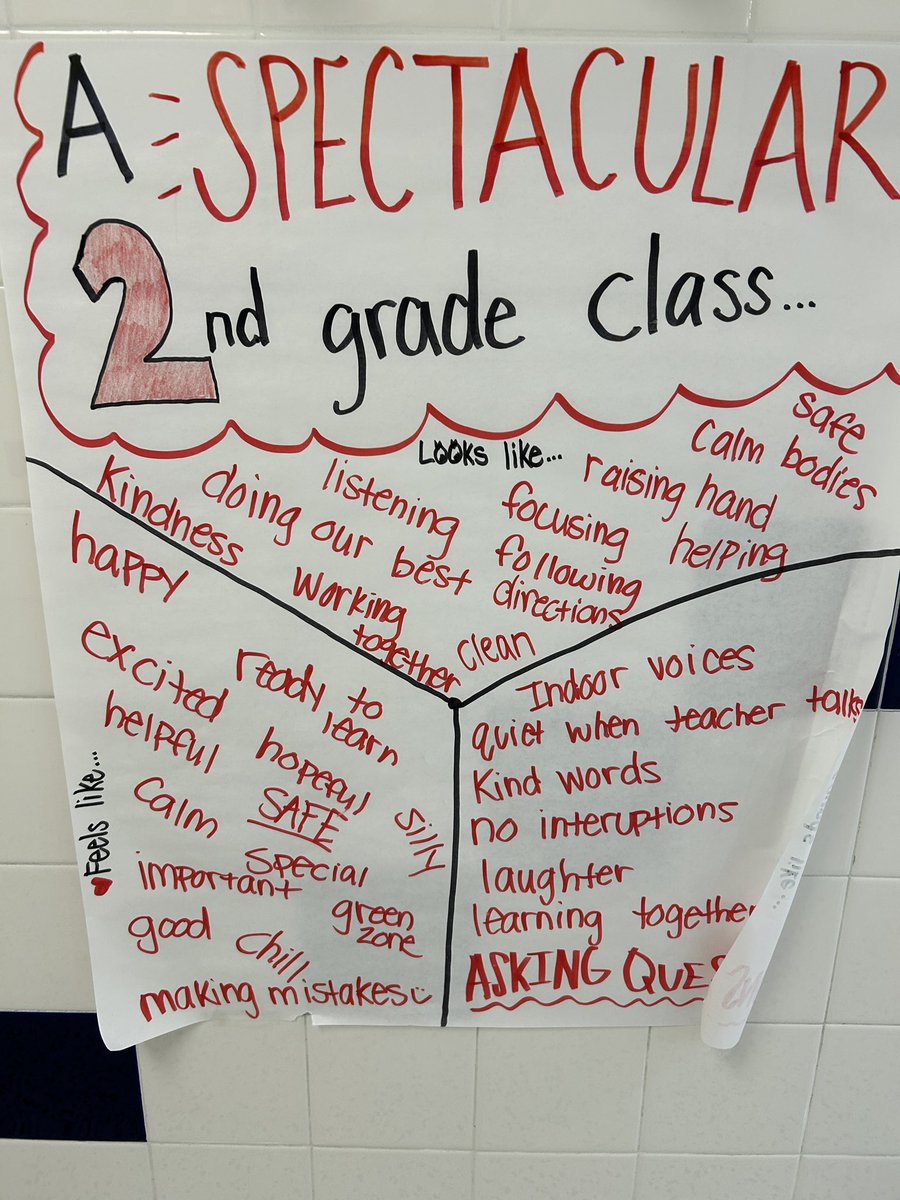 A SPECTACULAR
2nd grade class...
Looks like...
safe
calm bodies
raising hand
helping
listening
focusing
doing our best
following
directions
Kindness
working
together
clean
Feels like...
happy
excited
ready to
learn
helpful
hopeful
calm
SAFE
silly
special
important
green
zone
good
chill
making mistakes
Indoor voices
quiet when teacher talks
Kind words
no interuptions
laughter
learning together
ASKING QUES
like...